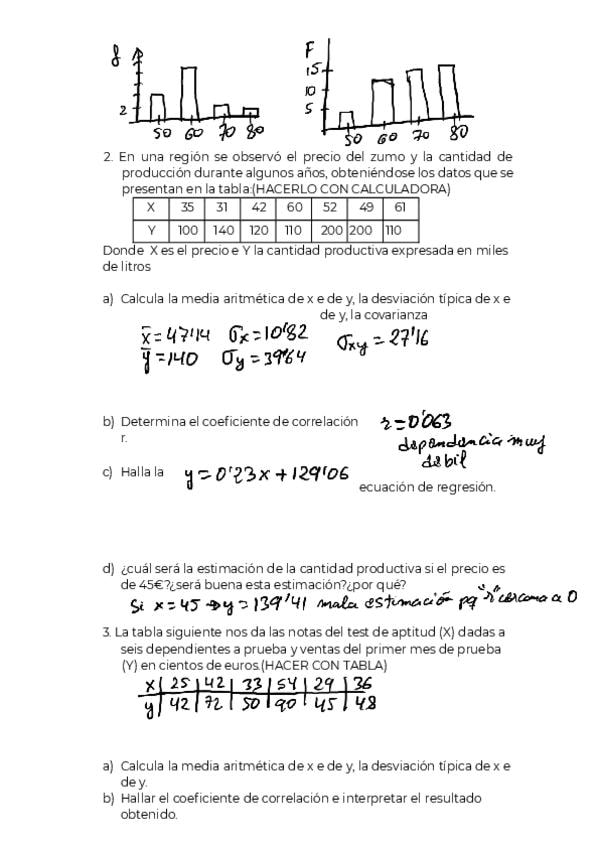 f
2
50 60 70 80
F
15
10
5
50 60 70 80
2. En una región se observó el precio del zumo y la cantidad de
producción durante algunos años, obteniéndose los datos que se
presentan en la tabla:(HACERLO CON CALCULADORA)
X 35 31 42 60 52 49 61
Y 100 140 120 110 200 200 110
Donde X es el precio e Y la cantidad productiva expresada en miles
de litros
a) Calcula la media aritmética de x e de y, la desviación típica de x e
de y, la covarianza
x̄=47'14 σx=10'82 σxy=27'16
ȳ=140 σy=39'64
b) Determina el coeficiente de correlación
r.
r=0'063
dependencia muy
débil
c) Halla la y=0'23x+129'06
ecuación de regresión.
d) ¿cuál será la estimación de la cantidad productiva si el precio es
de 45€?¿será buena esta estimación?¿por qué?
Si x=45 ⇒ y=139'41 mala estimación pq "r" cercana a 0
3. La tabla siguiente nos da las notas del test de aptitud (X) dadas a
seis dependientes a prueba y ventas del primer mes de prueba
(Y) en cientos de euros.(HACER CON TABLA)
x | 25 | 42 | 33 | 54 | 29 | 36
y | 42 | 72 | 50 | 90 | 45 | 48
a) Calcula la media aritmética de x e de y, la desviación típica de x e
de y.
b) Hallar el coeficiente de correlación e interpretar el resultado
obtenido.